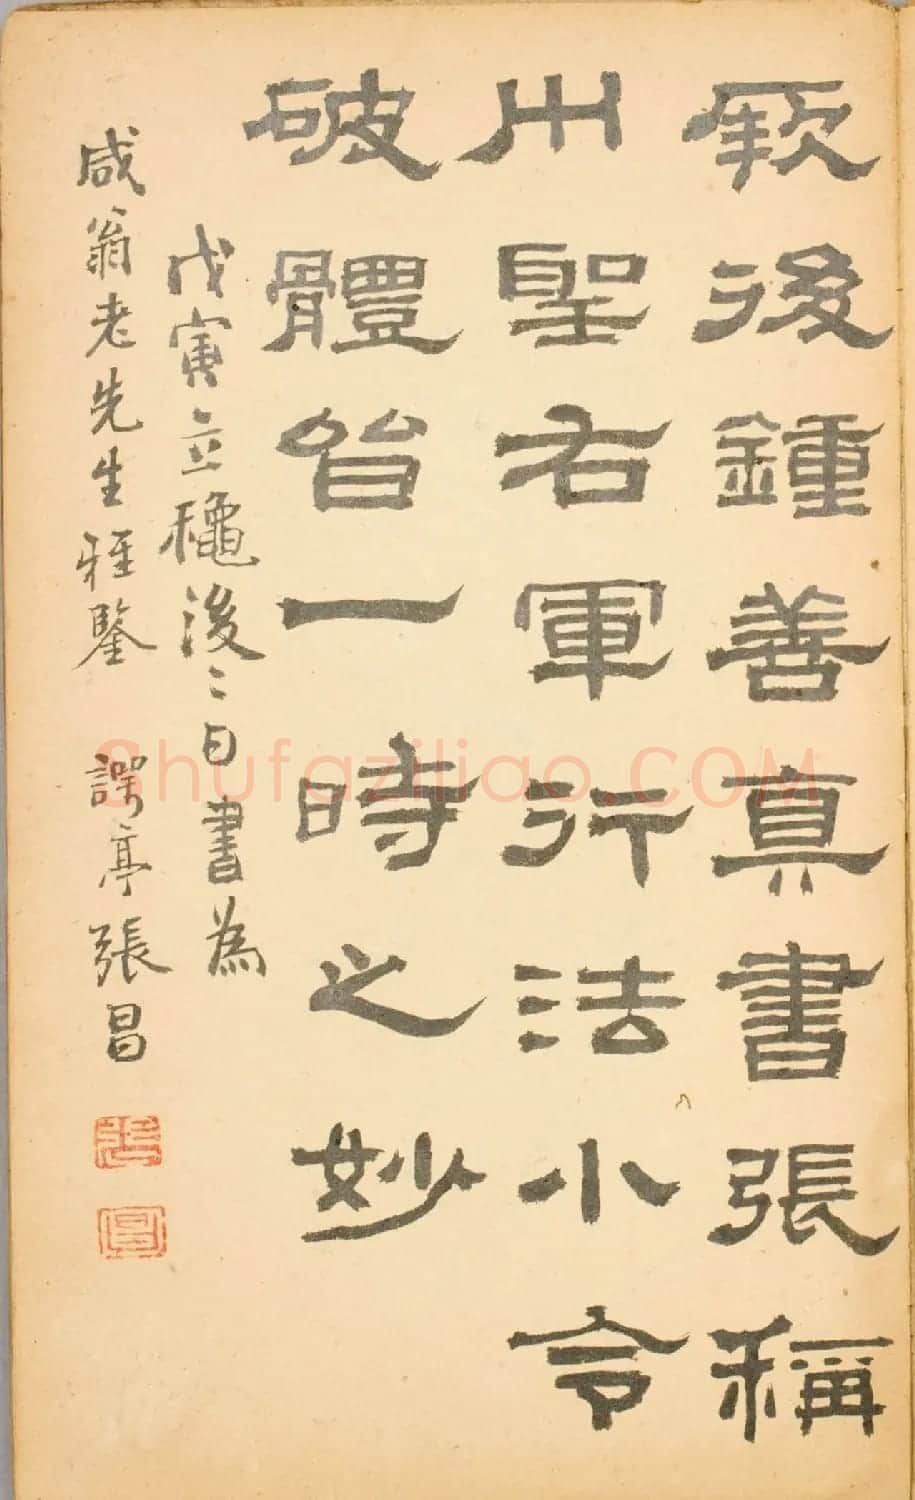 厥後鍾善真書張稱
艸聖右軍行法小令
破體皆一時之妙
戊寅立龝後二日書為
咸翁老先生雅鑒 諤亭張昌
張
昌
Shufaziliao.COM